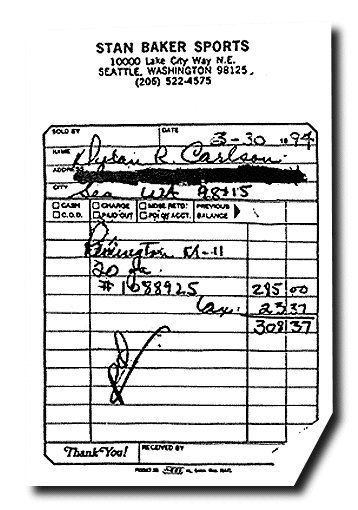 STAN BAKER SPORTS
10000 Lake City Way N.E.
SEATTLE, WASHINGTON 98125
(206) 522-4575
SOLD BY DATE 3-30 1994
NAME Dylan R. Carlson
ADDRESS
CITY Sea WA 98115
CASH CHARGE MDSE. RETD. PREVIOUS
C.O.D. PAID OUT ON ACCT. BALANCE
Remington M-11
20 ga.
# 1088925 285 00
tax 23 37
308 37
Thank You! RECEIVED BY